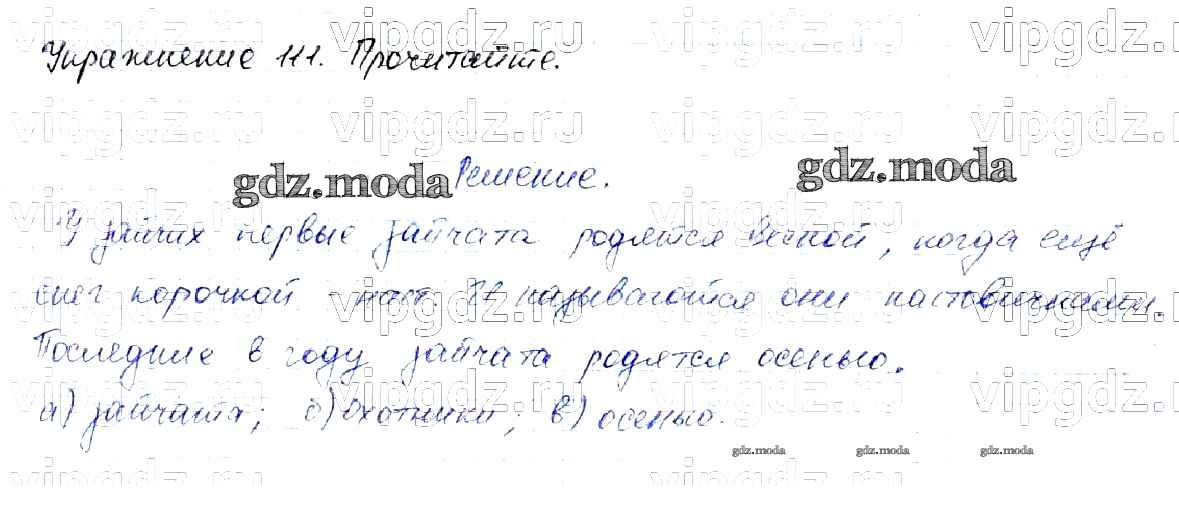 Упражнение 111. Прочитайте.
Решение.
У зайчих первые зайчата родятся весной, когда ещё
снег корочкой - наст. И называются они настовичками.
Последние в году зайчата родятся осенью.
а) зайчата; б) охотники; в) осенью.
vipgdz.ru
gdz.moda
gdz.moda
gdz.moda gdz.moda gdz.moda